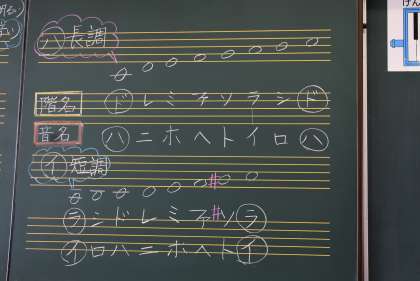 ハ長調
階名 ド レ ミ ファ ソ ラ シ ド
音名 ハ ニ ホ ヘ ト イ ロ ハ
イ短調
ラ シ ド レ ミ ファ# ソ ラ
イ ロ ハ ニ ホ ヘ ト イ